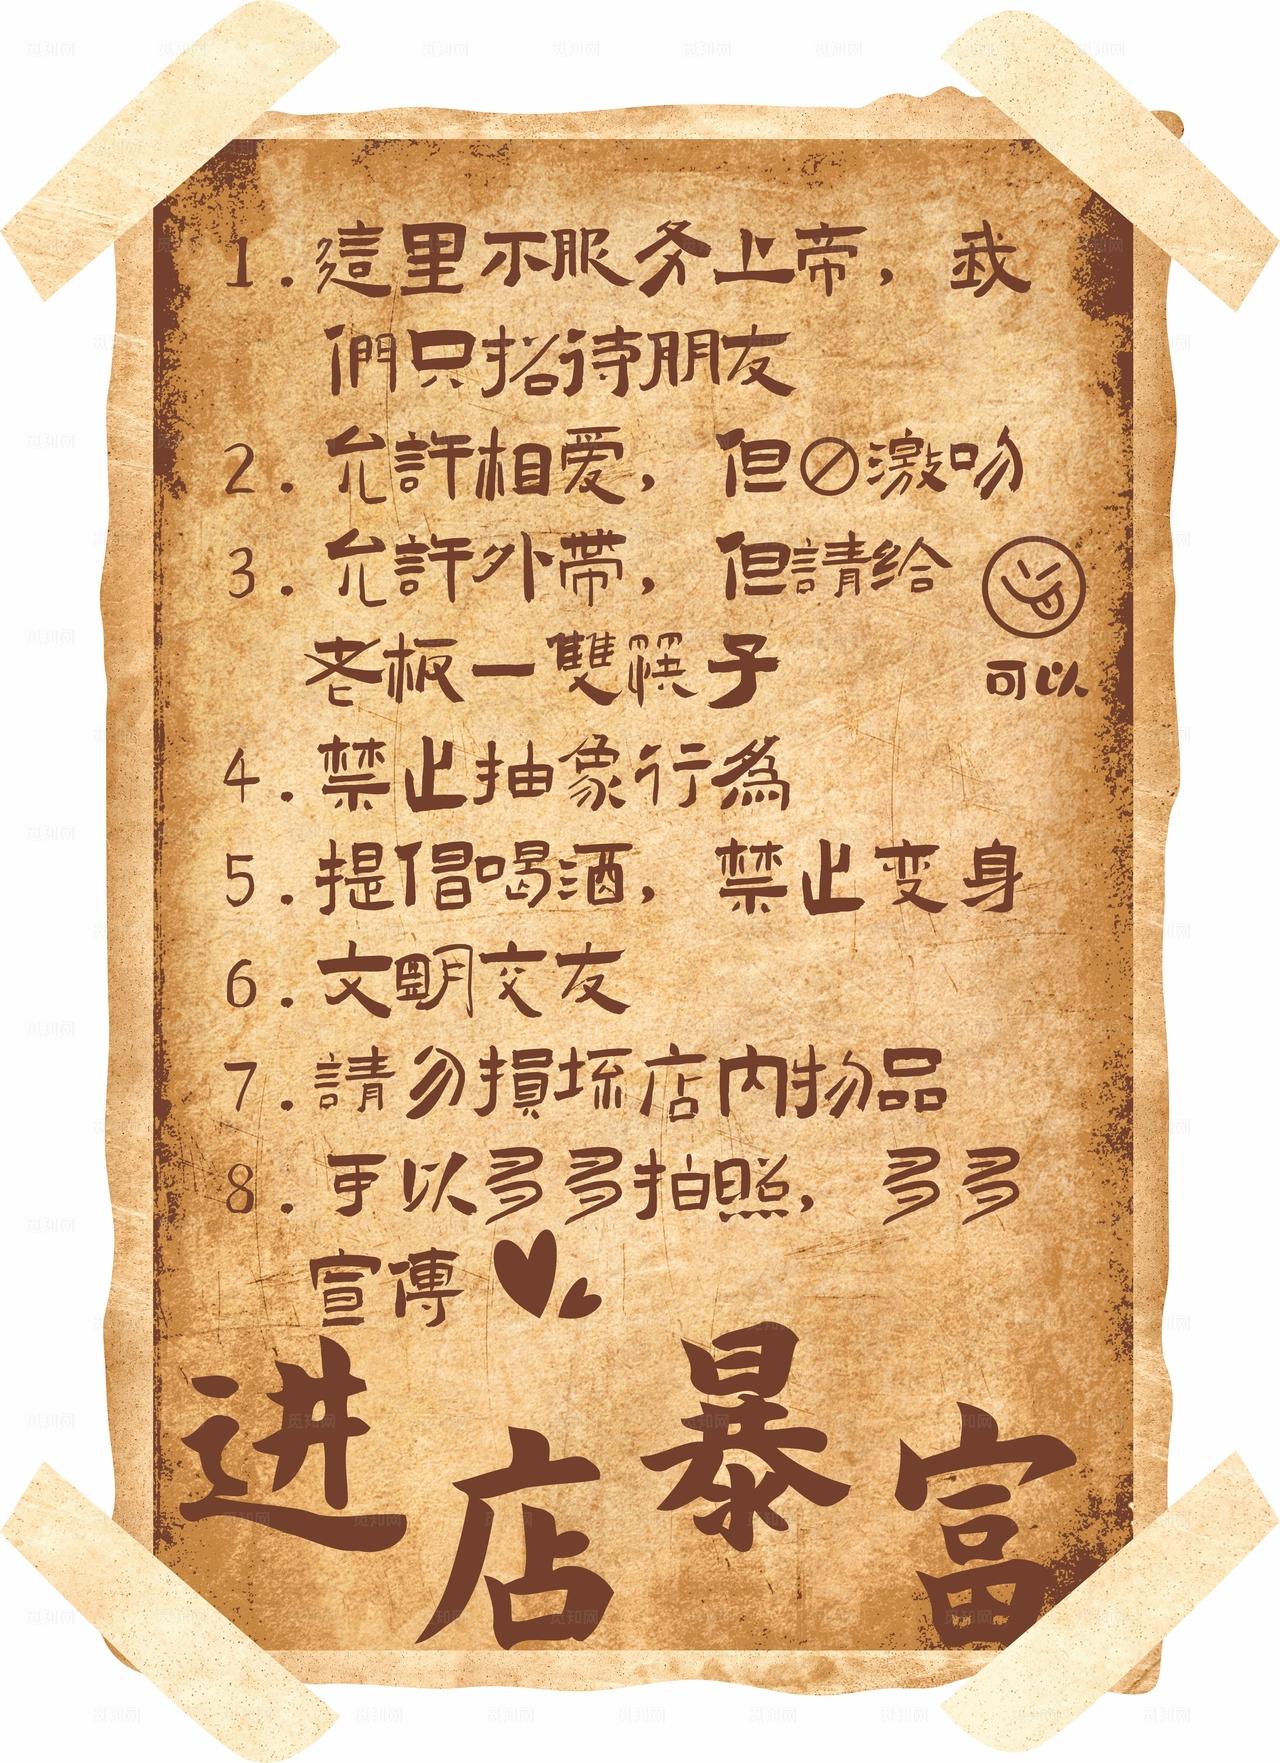 1.這里不服务上帝，我
們只招待朋友
2.允許相爱，但⊘激吻
3.允許外帶，但請给
老板一雙筷子
可以
4.禁止抽象行為
5.提倡喝酒，禁止变身
6.文明交友
7.請勿損坏店内物品
8.可以多多拍照，多多
宣傳
进店暴富
觅知网